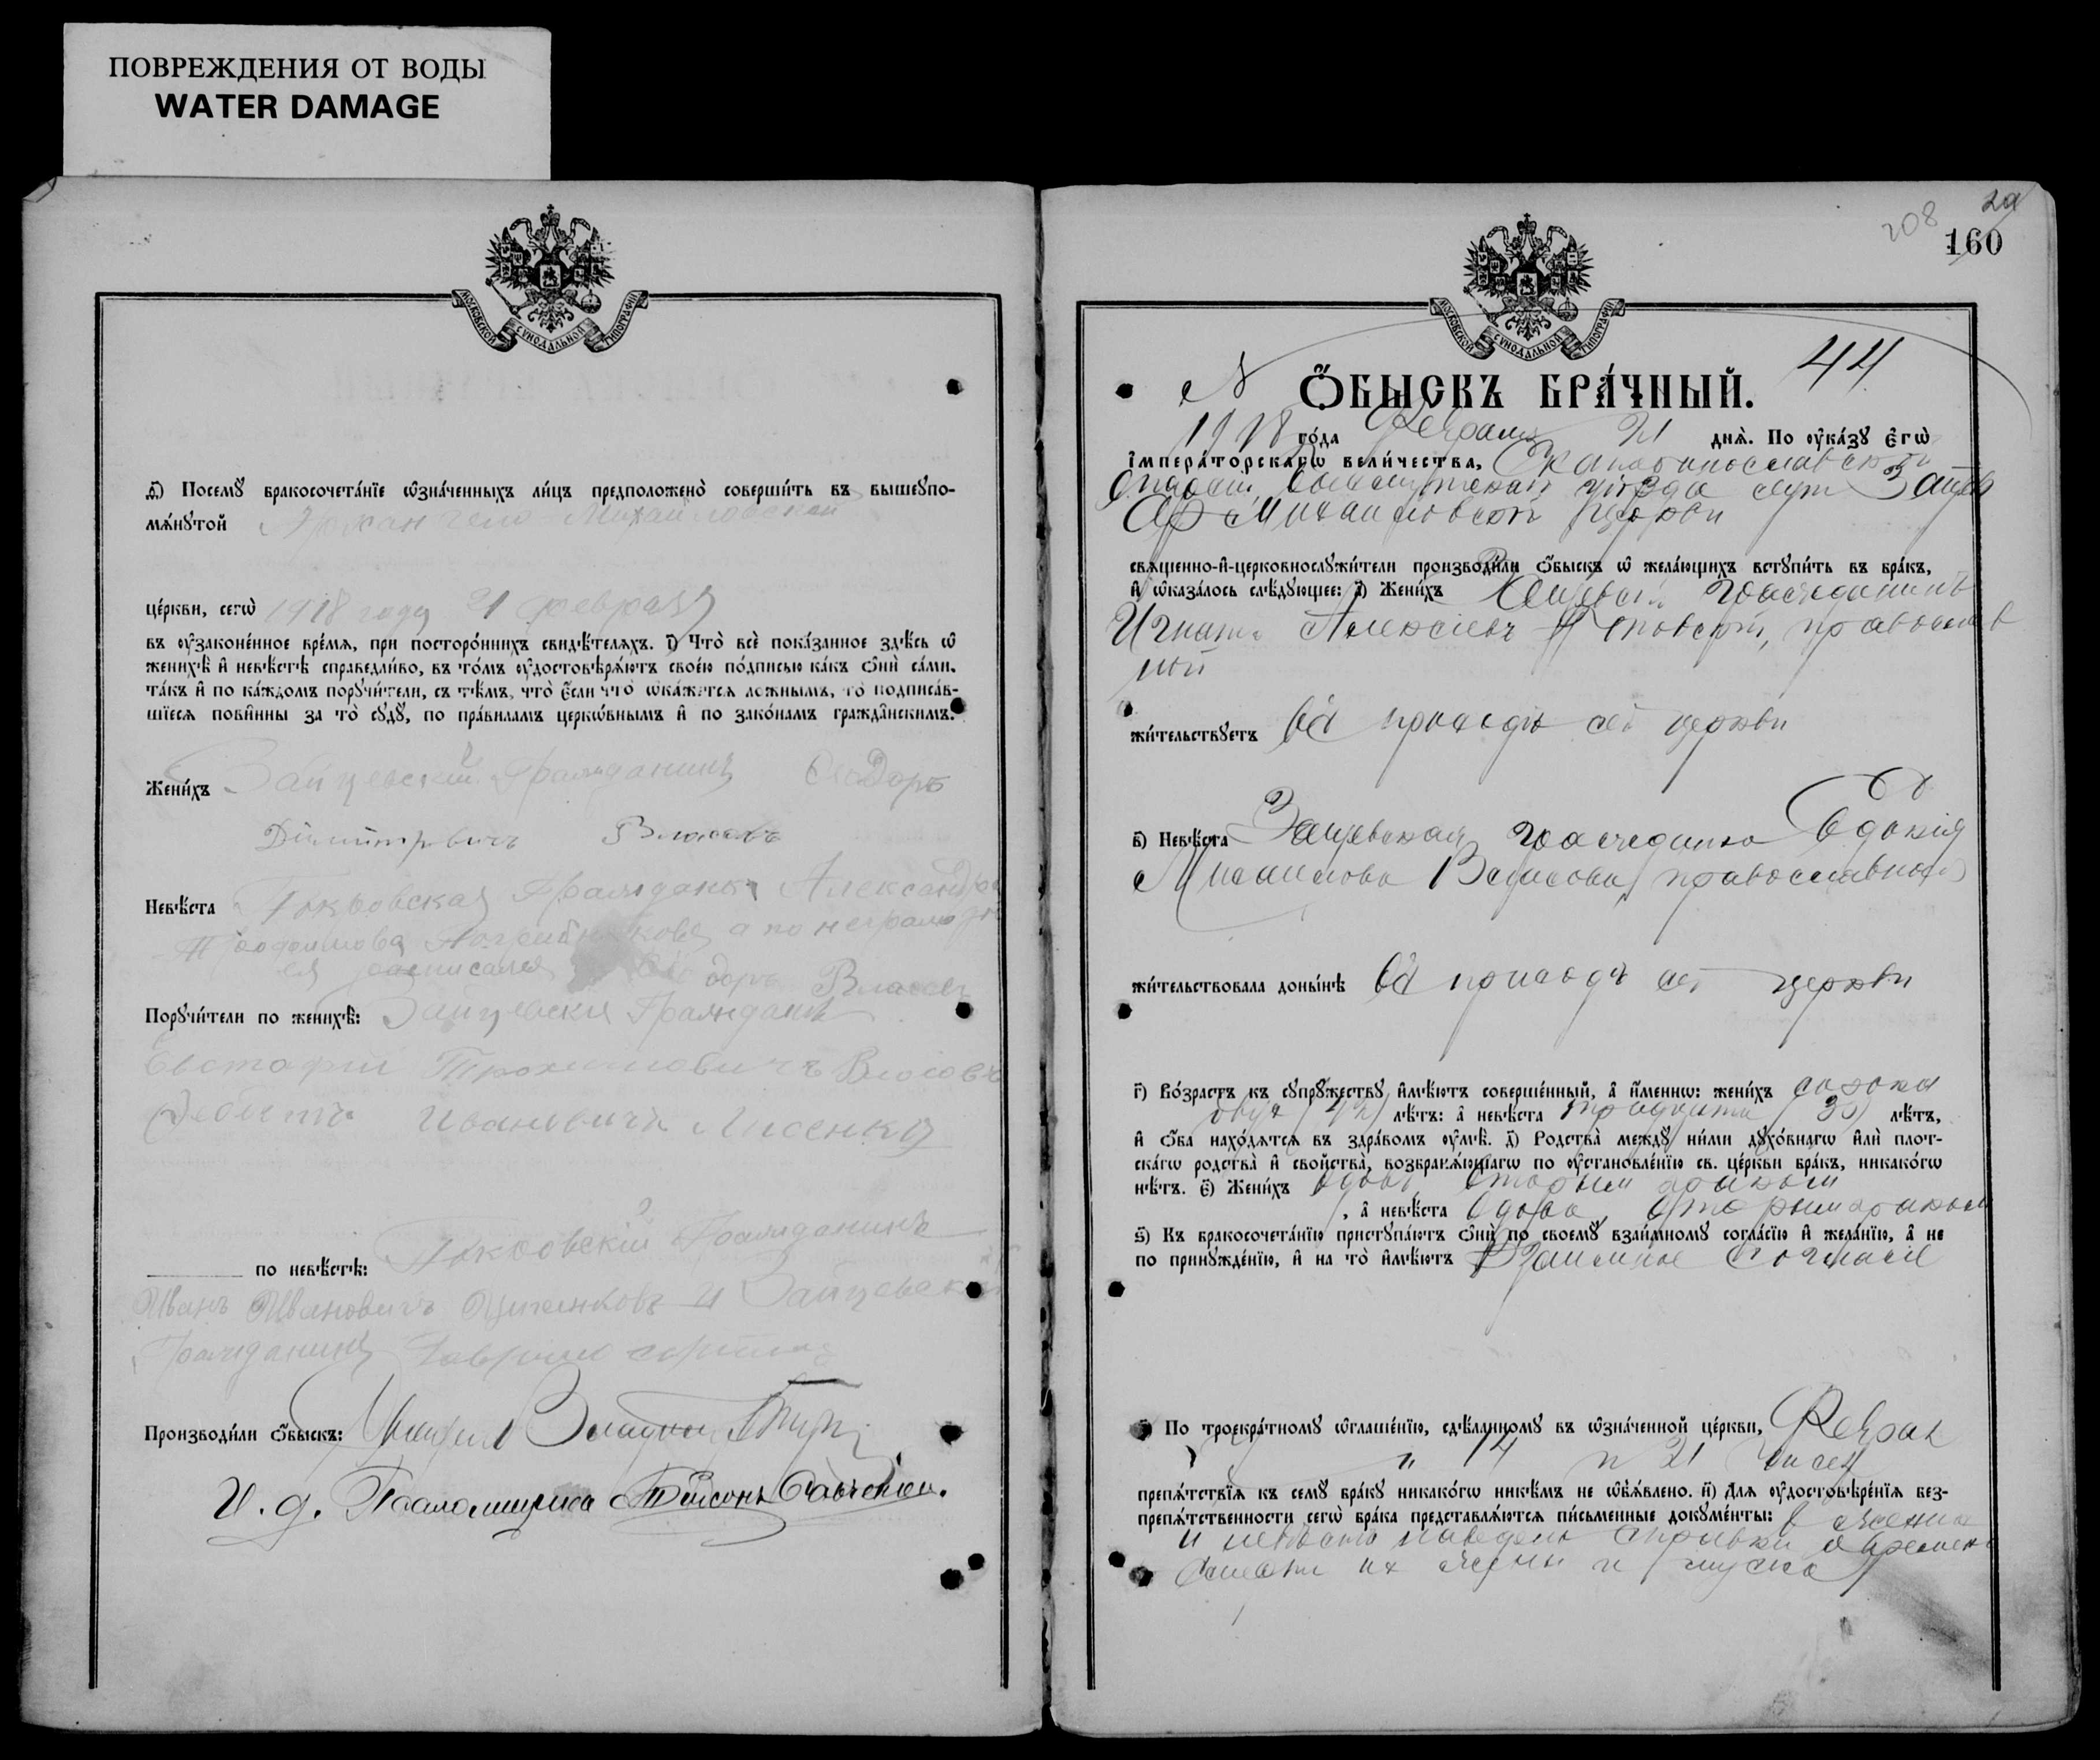 ПОВРЕЖДЕНИЯ ОТ ВОДЫ
WATER DAMAGE
МОСКОВСКОЙ СѴНОДАЛЬНОЙ ТИПОГРАФІИ
ѳ҃) Посемꙋ̀ бракосочета́нїе ѡ҆зна́ченныхъ ли́цъ предположено̀ соверши́ть въ вышеꙋпо-
мѧ́нꙋтой Архангело-Михайловской
це́ркви, сегѡ̀ 1918 году 21 февраля
въ ᲂу҆законе́нное вре́мѧ, при посторо́ннихъ свидѣ́телѧхъ. і҃) Что̀ всѐ пока́занное здѣ́сь ѡ҆
женихѣ̀ и҆ невѣ́стѣ справедли́во, въ то́мъ ᲂу҆достовѣрѧ́ютъ свое́ю по́дписью ка́къ ѻ҆нѝ са́ми,
та́къ и҆ по ка́ждомъ порꙋчи́тели, съ тѣ́мъ, что̀ є҆́сли что̀ ѡ҆ка́жетсѧ ло́жнымъ, то̀ подписа́в-
шїесѧ пови́нны за то̀ сꙋдꙋ̀, по пра́виламъ церкѡ́внымъ и҆ по зако́намъ гражда̑нскимъ.
Жени́хъ Зайцевскій Гражданинъ Сидоръ
Димитровичъ Власовъ
Невѣ́ста Покровская Гражданка Александра
а по неграмотн
ея расписался Сидоръ Власовъ
Порꙋчи́тели по женихѣ̀: Зайцевскія Граждане
Евстафій Трохимовичъ Власовъ
Ивановичъ Лисенко
по невѣ́стѣ: Покровскій Гражданинъ
Иванъ Ивановичъ и Зайцевскій
Гражданинъ
Производи́ли ѻ҆́быскъ:
И. д. Псаломщика
208
160
МОСКОВСКОЙ СѴНОДАЛЬНОЙ ТИПОГРАФІИ
N Ѻ҆́БЫСКЪ БРА́ЧНЫЙ. 44
1918 го́да Февраля 21 днѧ̀. По ᲂу҆ка́зꙋ є҆гѡ̀
і҆мпера́торскагѡ вели́чества, Екатеринославской
Епархіи, уѣзда села Зайцев
Ар. Михайловской церкви
свѧще́нно-и҆-церковнослꙋжи́тели производи́ли ѻ҆́быскъ ѡ҆ жела́ющихъ встꙋпи́ть въ бра́къ,
и҆ ѡ҆каза́лось слѣ́дꙋющее: а҃) Жени́хъ Зайцевскій гражданинъ
Игнатій Алексіевъ православ
ный
жи́тельствꙋетъ въ приходѣ сей церкви
в҃) Невѣ́ста Зайцевская гражданка Евдокія
Михаилова Власова, православная
жи́тельствовала доны́нѣ въ приходѣ сей церкви
г҃) Во́зрастъ къ сꙋпрꙋ́жествꙋ и҆мѣ́ютъ соверше́нный, а҆ и҆́меннѡ: жени́хъ сорока
двух (42) лѣ́тъ: а҆ невѣ́ста тридцати (30) лѣ́тъ,
и҆ ѻ҆́ба нахо́дѧтсѧ въ здра́вомъ ᲂу҆мѣ̀. д҃) Родства̀ междꙋ̀ ни́ми дꙋхо́внагѡ и҆лѝ плот-
ска́гѡ родства̀ и҆ свойства̀, возбранѧ́ющагѡ по ᲂу҆становле́нїю св. це́ркви бра́къ, никако́гѡ
нѣ́тъ. є҃) Жени́хъ вдовъ, вторым браком
, а҆ невѣ́ста вдова, вторым браком
ѕ҃) Къ бракосочета́нїю пристꙋпа́ютъ ѻ҆нѝ по своемꙋ̀ взаи́мномꙋ согла́сїю и҆ жела́нїю, а҆ не
по принꙋжде́нїю, и҆ на то̀ и҆мѣ́ютъ взаимное согласіе
з҃) По троекра́тномꙋ ѡ҆глаше́нїю, сдѣ́ланномꙋ въ ѡ҆зна́ченной це́ркви, Феврал
14 и 21 чисел
препѧ́тствїѧ къ семꙋ̀ бра́кꙋ никако́гѡ никѣ́мъ не ѡ҆б̾ѧ́влено. и҃) Длѧ ᲂу҆достовѣре́нїѧ без-
препѧ́тственности сегѡ̀ бра́ка представлѧ́ютсѧ пи́сьменные докꙋме́нты: о женихѣ
и невѣстѣ наведены справки о времени
смерти их жены и мужа